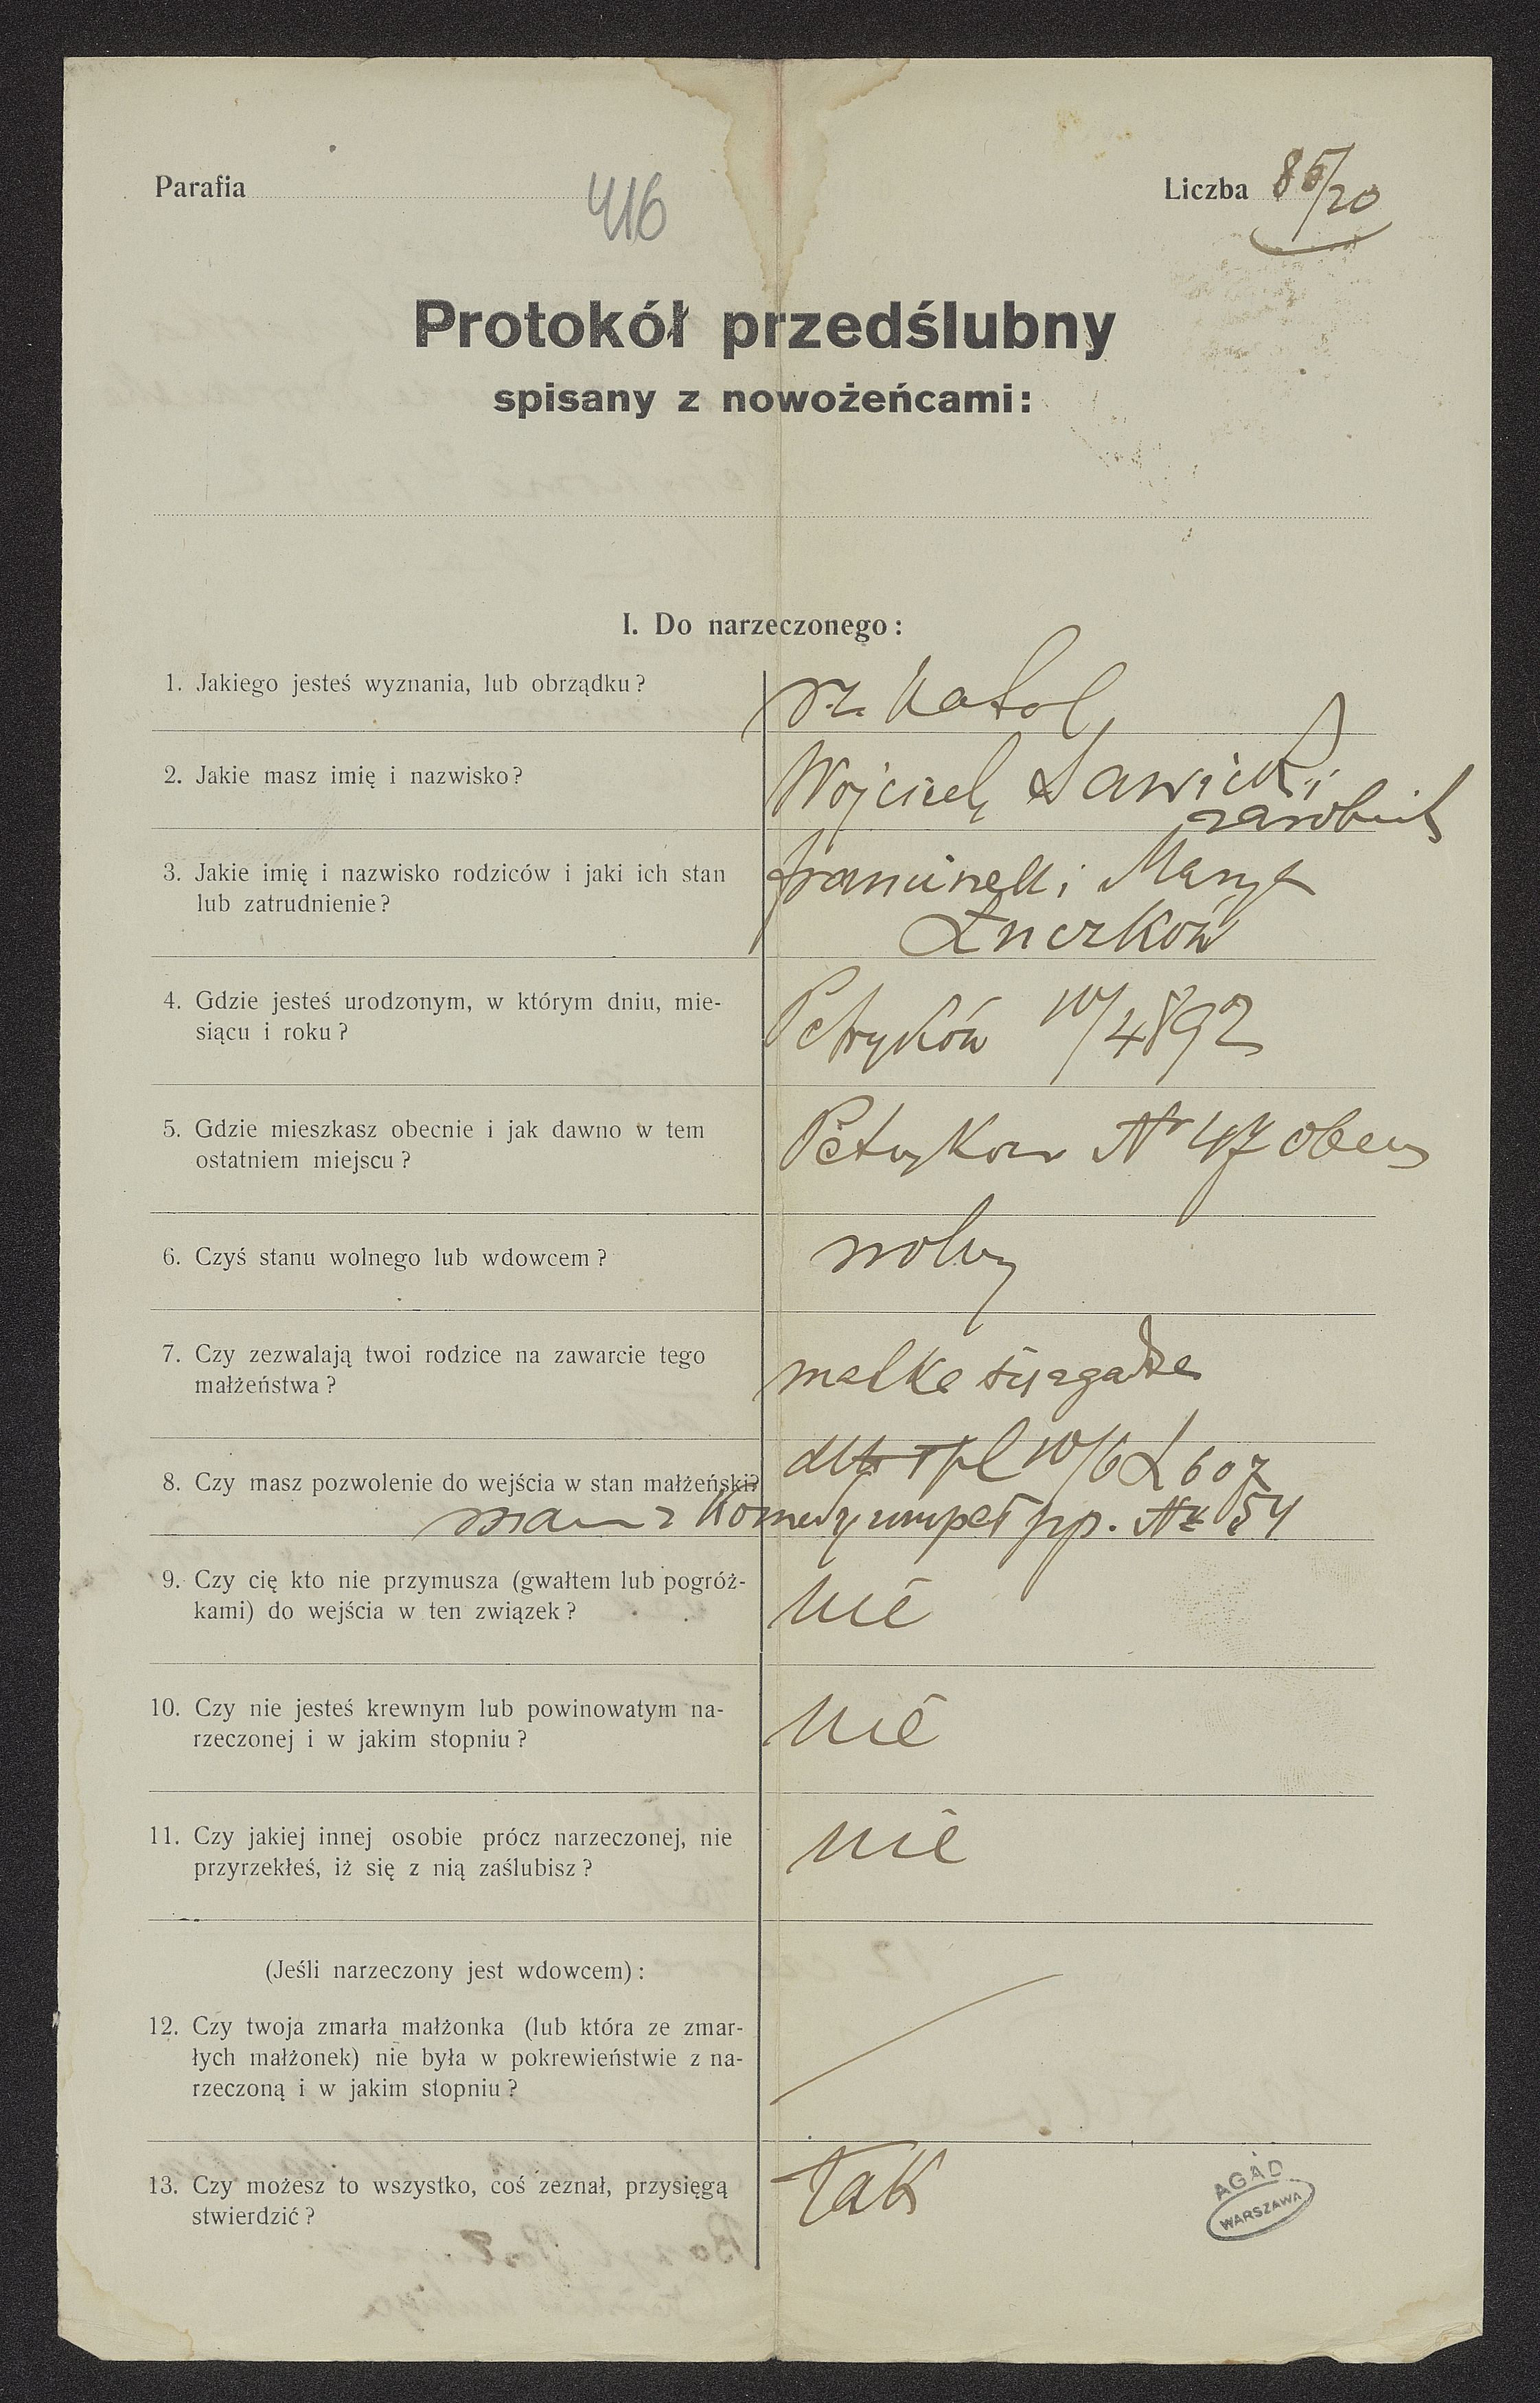 Parafia
416
Liczba 85/20
Protokół przedślubny
spisany z nowożeńcami:
I. Do narzeczonego:
1. Jakiego jesteś wyznania, lub obrządku?
rz. katol
2. Jakie masz imię i nazwisko?
Wojciech Sawicki
zarobnik
3. Jakie imię i nazwisko rodziców i jaki ich stan
lub zatrudnienie?
Franciszek i Marya
Łuczków
4. Gdzie jesteś urodzonym, w którym dniu, mie-
siącu i roku?
Petryków 10/4 892
5. Gdzie mieszkasz obecnie i jak dawno w tem
ostatniem miejscu?
Petryków Nr 47
6. Czyś stanu wolnego lub wdowcem?
wolny
7. Czy zezwalają twoi rodzice na zawarcie tego
małżeństwa?
matka się zgadza
8. Czy masz pozwolenie do wejścia w stan małżeński?
10/6 L 607
mam z pp. Nr 54
9. Czy cię kto nie przymusza (gwałtem lub pogróż-
kami) do wejścia w ten związek?
nie
10. Czy nie jesteś krewnym lub powinowatym na-
rzeczonej i w jakim stopniu?
nie
11. Czy jakiej innej osobie prócz narzeczonej, nie
przyrzekłeś, iż się z nią zaślubisz?
nie
(Jeśli narzeczony jest wdowcem):
12. Czy twoja zmarła małżonka (lub która ze zmar-
łych małżonek) nie była w pokrewieństwie z na-
rzeczoną i w jakim stopniu?
13. Czy możesz to wszystko, coś zeznał, przysięgą
stwierdzić?
Tak
AGAD
WARSZAWA